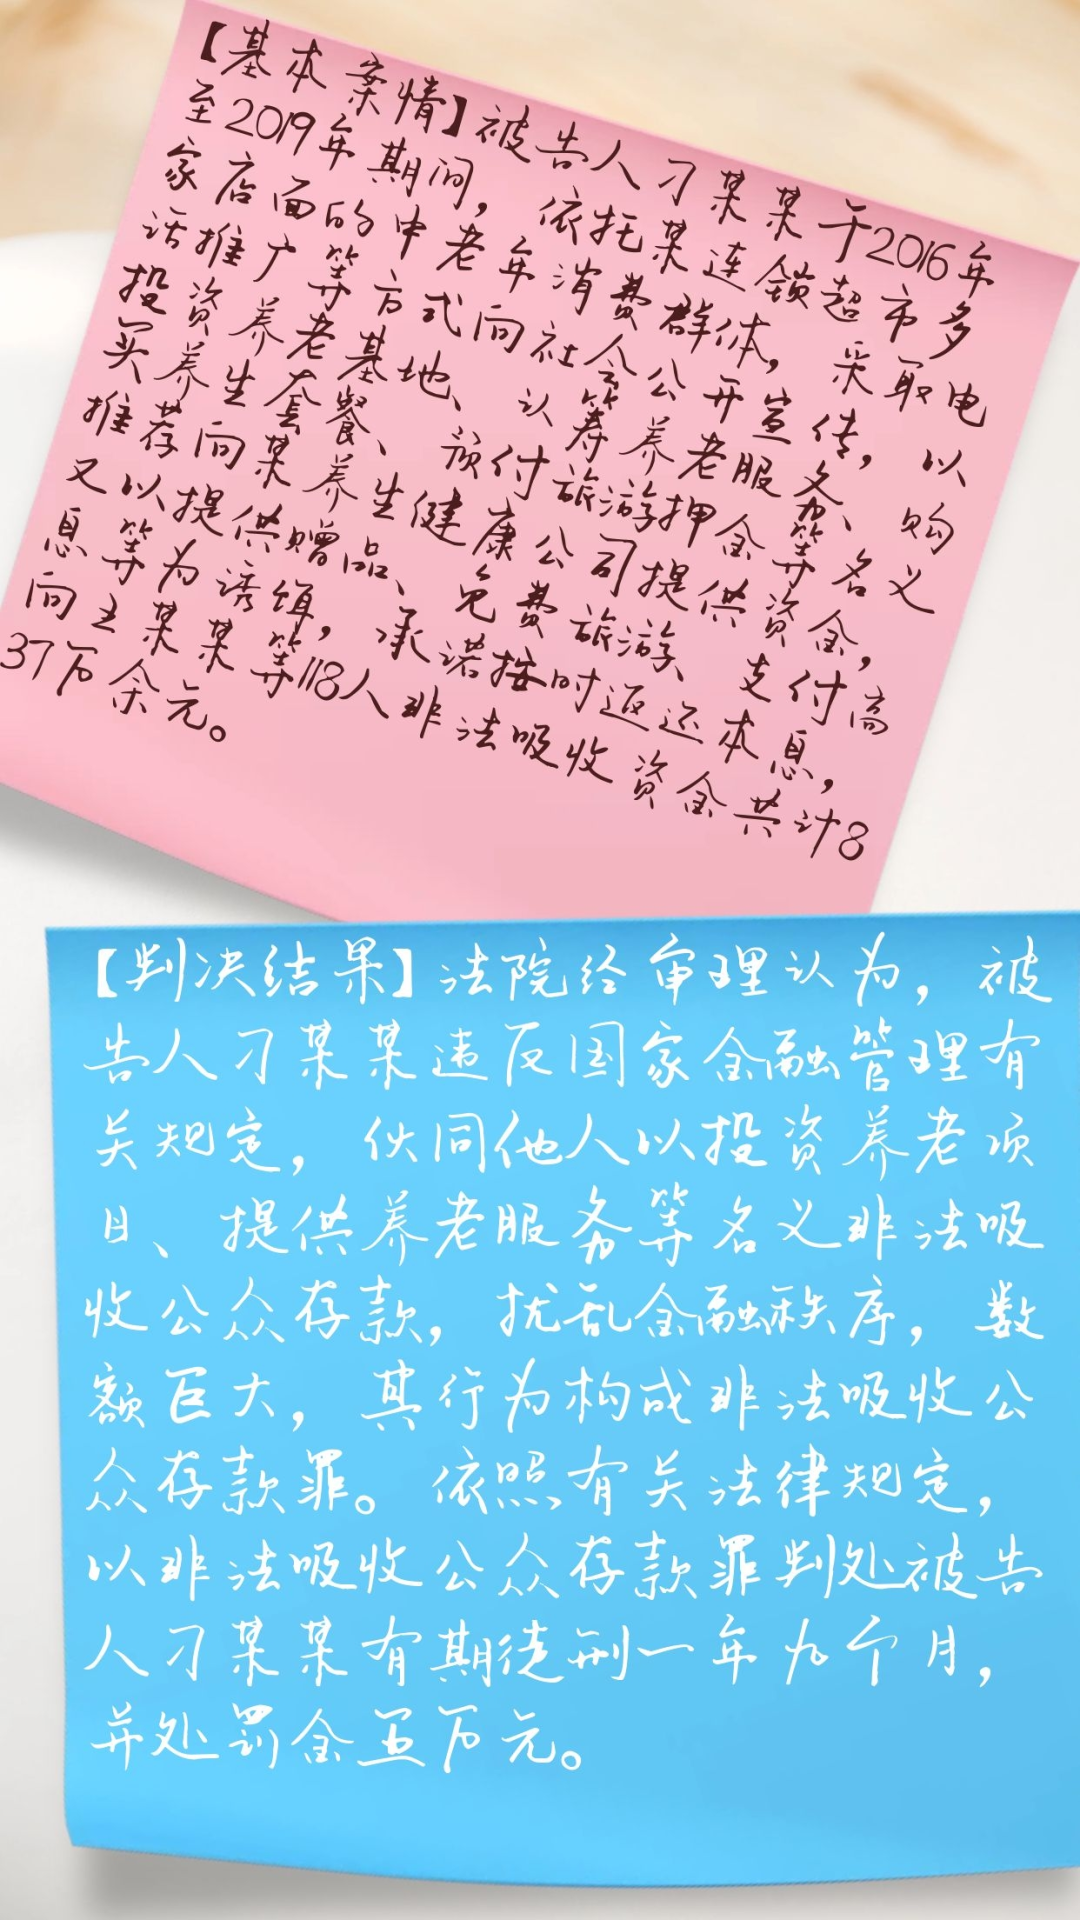 【基本案情】被告人刁某某于2016年
至2019年期间，依托某连锁超市多
家店面的中老年消费群体，采取电
话推广等方式向社会公开宣传，以
投资养老基地、认筹养老服务、购
买养生套餐、预付旅游押金等名义
推荐向某养生健康公司提供资金，
又以提供赠品、免费旅游、支付高
息等为诱饵，承诺按时返还本息，
向王某某等118人非法吸收资金共计8
37万余元。
【判决结果】法院经审理认为，被
告人刁某某违反国家金融管理有
关规定，伙同他人以投资养老项
目、提供养老服务等名义非法吸
收公众存款，扰乱金融秩序，数
额巨大，其行为构成非法吸收公
众存款罪。依照有关法律规定，
以非法吸收公众存款罪判处被告
人刁某某有期徒刑一年九个月，
并处罚金五万元。